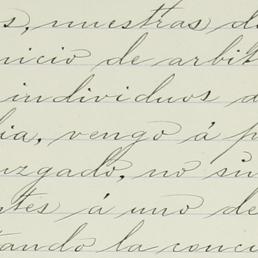 s, nuestras d
nicio de arbit
individuos d
lia, vengo á p
uzgado, no sin
ntes á uno de
tando la conci